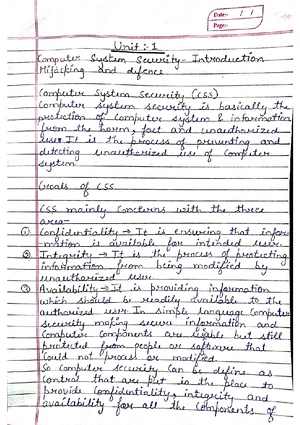 Date:- / /
Page:-
Unit :- 1
Computer System Security - Introduction
Hijacking and defence
Computer System Security (CSS)
Computer system security is basically the
protection of computer system & information
from the harm, fact and unauthorized
use. It is the process of preventing and
detecting unauthorized use of computer
system
Goals of CSS
CSS mainly Concerns with the three
area-
① Confidentiality → It is ensuring that infor-
-mation is available for intended user.
② Integrity → It is the process of protecting
information from being modified by
unauthorized user.
③ Availability → It is providing information
which should be readily available to the
authorized user. In simple language Computer
security making secure information and
Computer Components are usable but still
protected from people or software that
could not process or modified.
So computer security can be define as
Control that are put is the place to
provide Confidentiality, integrity and
availability for all the Components of